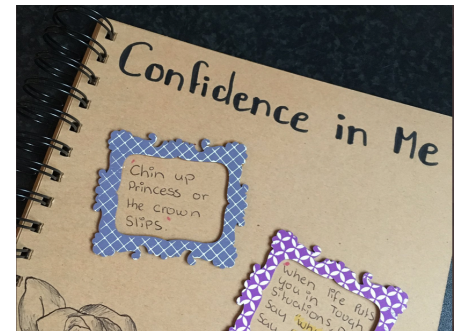 Confidence in Me
Chin up
Princess or
the crown
Slips.
When life Puts
you in Tough
Situations,
Say
Say